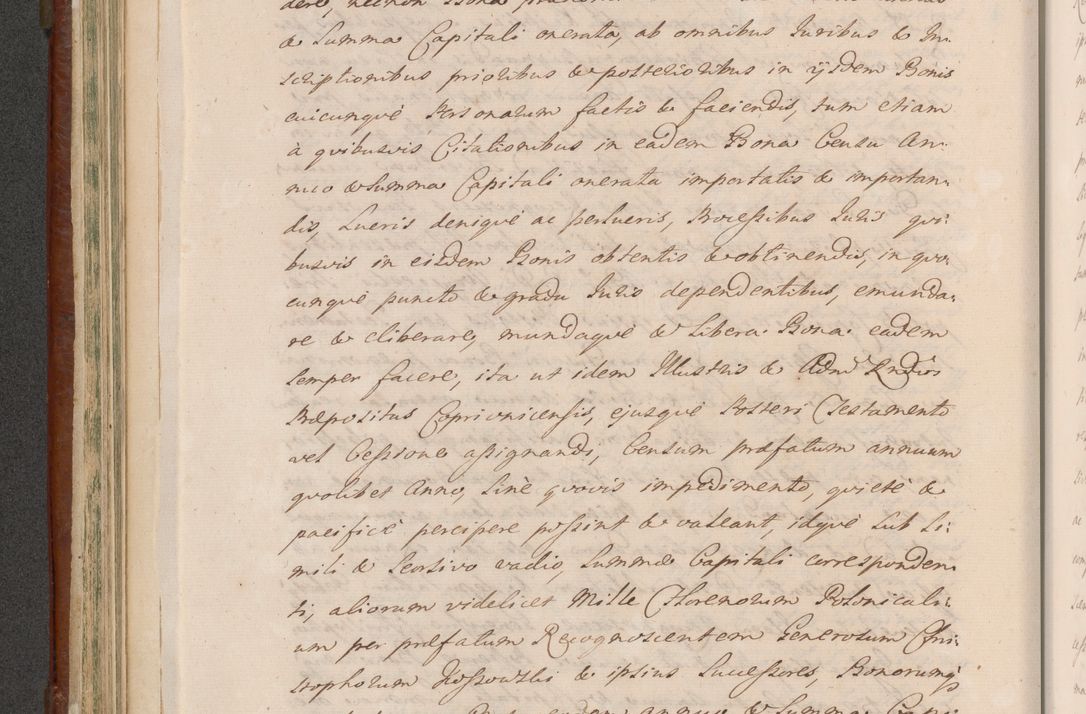 & Summa Capitali onerata, ab omnibus Juribus & In:
scriptionibus prioribus & posterioribus in ijsdem Bonis
cuicunquè Personarum factis & faciendis, tum etiam
à quibusvis Citationibus in eadem Bona Censu An:
nuo & Summa Capitali onerata importatis & importan:
dis, Lucris deniquè ac perlucris, Processibus Juris qui:
busvis in eisdem Bonis obtentis & obtinendis, in quo:
cunquè puncto & gradu Juris dependentibus, emunda:
re & eliberare, mundaquè & Libera Bona eadem
semper facere, ita ut idem Illustris & Adm Rndus
Præpositus Caprivnicensis, ejusquè Posteri Testamento
vel Cessione assignandi, Censum præfatum annuum
quolibet Anno, sinè quovis impedimento, quietè &
pacificè percipere possint & valeant, idquè sub Si:
mili & Seorsivo vadio, Summæ Capitali corresponden:
ti, aliorum videlicet Mille Florenorum Polonicali:
um per præfatum Recognoscentem Generosum Chri:
stophorum Kossowski & ipsius Successores, Bonorumq